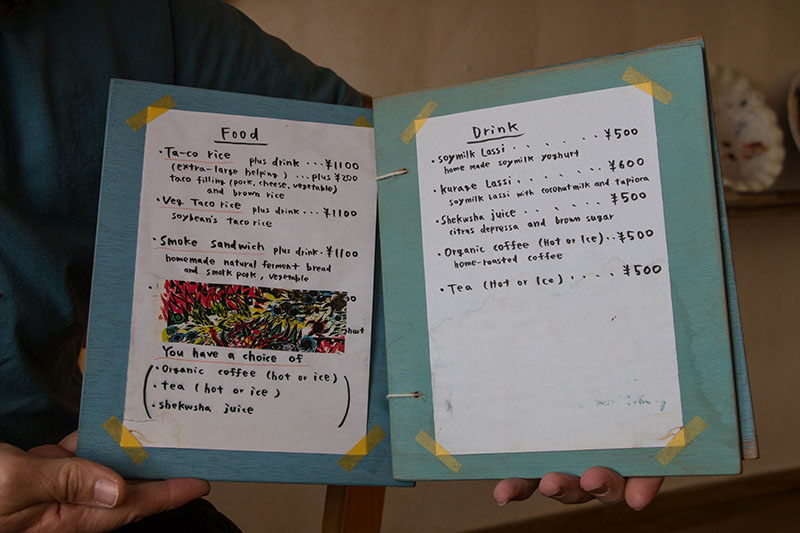 Food
・Ta-co rice plus drink ･･･¥1100
(extra-large helping ) ･･･plus ¥200
taco filling (pork, cheese, vegetable)
and brown rice
・Veg Taco rice plus drink ･･･¥1100
soybean's taco rice
・Smoke Sandwich plus drink･¥1100
homemade natural ferment bread
and smolk pork, vegetable
You have a choice of
・Organic coffee (hot or ice)
・tea (hot or ice)
・shekwsha juice
Drink
・soymilk Lassi ･ ･ ･ ･ ･･¥500
home made soymilk yoghurt
・kurage Lassi ･ ･ ･ ･ ･･¥600
soymilk Lassi with coconutmilk and tapioca
・Shekwsha juice ･ ･ ･ ･ ･ ¥500
citrus depressa and brown sugar
・Organic coffee (Hot or Ice)･･¥500
home-roasted coffee
・Tea (Hot or Ice) ･ ･ ･ ･ ¥500